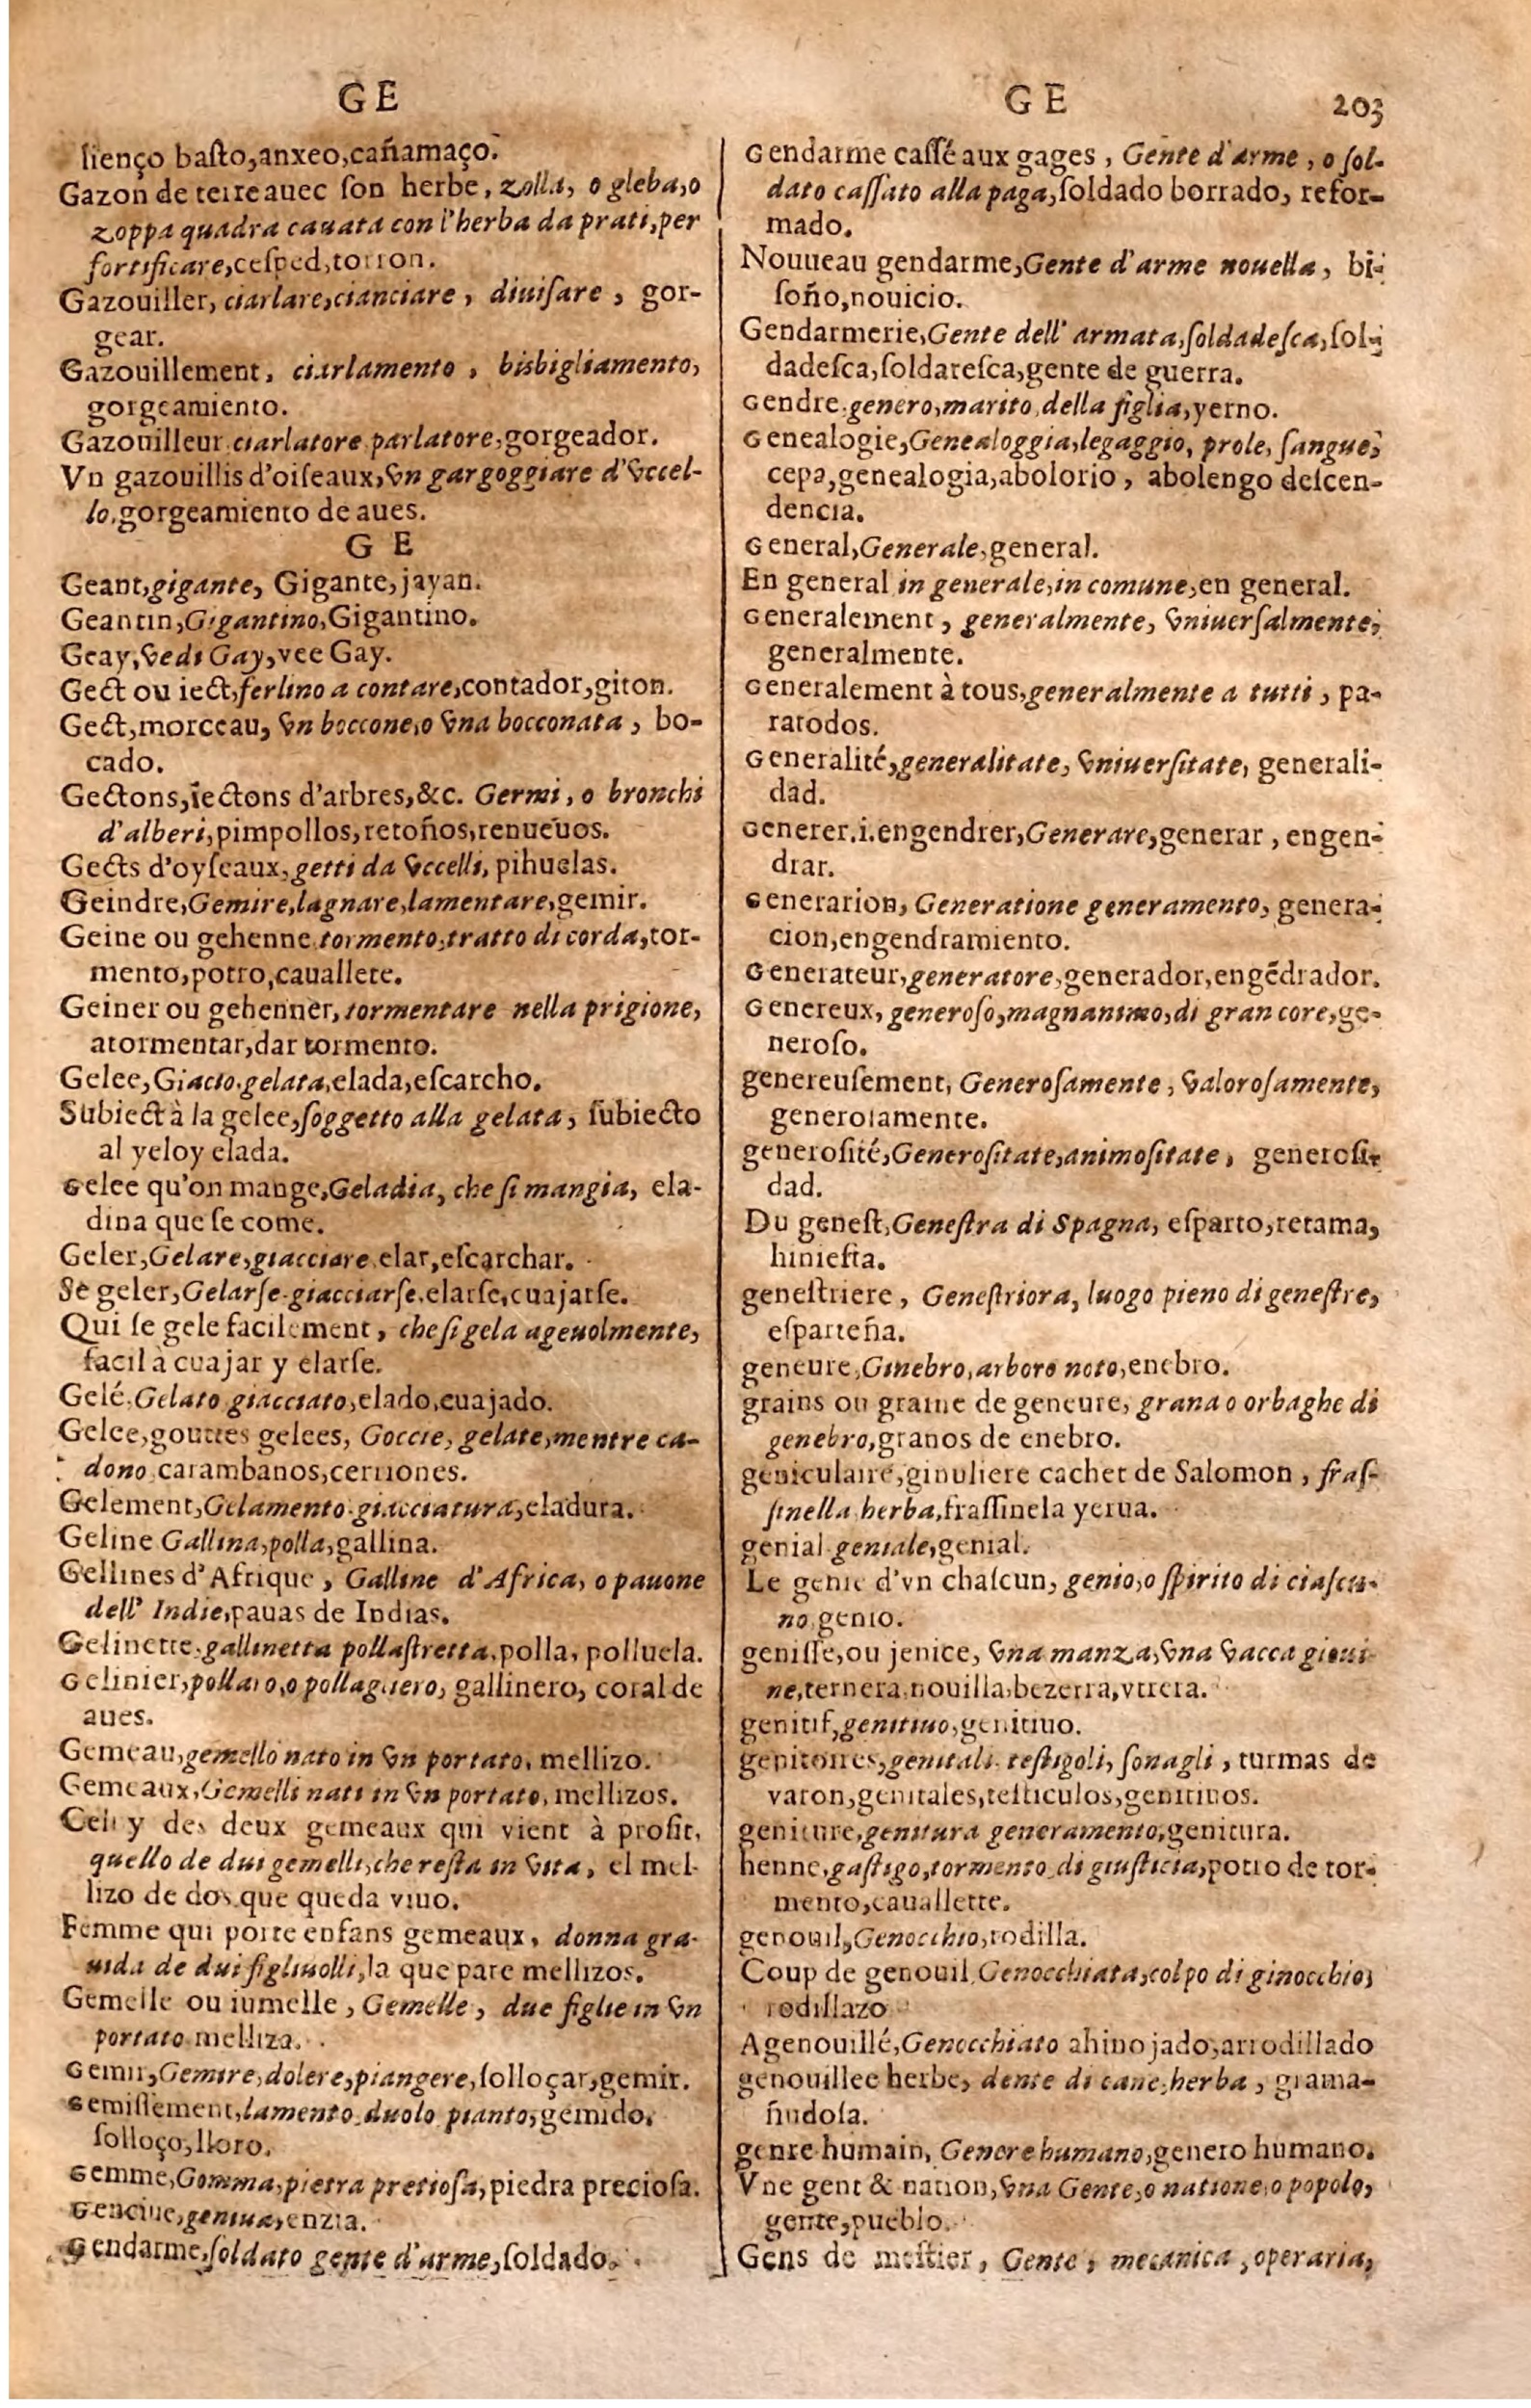 GE
ſienço baſto,anxeo,cañamaço.
Gazon de terre auec ſon herbe, zolla, o gleba,o
zoppa quadra cauata con l'herba da prati,per
fortificare,ceſped,torron.
Gazouiller, ciarlare,cianciare, diuiſare, gor-
gear.
Gazouillement, ciarlamento, bisbigliamento,
gorgeamiento.
Gazouilleur ciarlatore parlatore,gorgeador.
Vn gazouillis d'oiſeaux,vn gargoggiare d'vccel-
lo,gorgeamiento de aues.
G E
Geant,gigante, Gigante,jayan.
Geantin,Gigantino,Gigantino.
Geay,vedi Gay,vee Gay.
Gect ou iect,ferlino a contare,contador,giton.
Gect,morceau, vn boccone,o vna bocconata, bo-
cado.
Gectons,iectons d'arbres,&c. Germi, o bronchi
d'alberi,pimpollos,retoños,renueuos.
Gects d'oyſeaux,getti da vccelli, pihuelas.
Geindre,Gemire,lagnare,lamentare,gemir.
Geine ou gehenne tormento,tratto di corda,tor-
mento,potro,cauallete.
Geiner ou gehenner,tormentare nella prigione,
atormentar,dar tormento.
Gelee,Giacto.gelata,elada,eſcarcho.
Subiect à la gelee,ſoggetto alla gelata, ſubiecto
al yeloy elada.
Gelee qu'on mange,Geladia, che ſi mangia, ela-
dina que ſe come.
Geler,Gelare,giacciare elar,eſcarchar.
Se geler,Gelarſe giacciarſe,elarſe,cuajarſe.
Qui ſe gele facilement, che ſi gela ageuolmente,
facil à cuajar y elarſe.
Gelé,Gelato giacciato,elado,cuajado.
Gelee,gouttes gelees, Goccie, gelate,mentre ca-
dono carambanos,cerriones.
Gelement,Gelamento.giacciatura,eladura.
Geline Gallina,polla,gallina.
Gellines d'Afrique, Galline d'Africa, o pauone
dell' Indie,pauas de Indias.
Gelinette,gallinetta pollaſtretta,polla, polluela.
Gelinier,pollaio,o pollaguero, gallinero, coral de
aues.
Gemeau,gemello nato in vn portato, mellizo.
Gemeaux,Gemelli nati in vn portato, mellizos.
Celuy des deux gemeaux qui vient à profit,
quello de dui gemelli,che reſta in vita, el mel-
lizo de dos que queda viuo.
Femme qui porte enfans gemeaux, donna gra-
uida de dui figliuolli,la que pare mellizos.
Gemelle ou iumelle, Gemelle, due figlie in vn
portato melliza.
Gemir,Gemire,dolere,piangere,ſolloçar,gemir.
Gemiſſement,lamento duolo pianto,gemido,
ſolloço,lloro.
Gemme,Gomma,pietra pretioſa,piedra precioſa.
Genciue,geniua,enzia.
Gendarme,ſoldato gente d'arme,ſoldado.
GE 203
Gendarme caſſé aux gages, Gente d'arme, o ſol-
dato caſſato alla paga,ſoldado borrado, refor-
mado.
Nouueau gendarme,Gente d'arme nouella, bi-
ſoño,nouicio.
Gendarmerie,Gente dell' armata,ſoldadeſca,ſol-
dadeſca,ſoldareſca,gente de guerra.
Gendre,genero,marito della figlia,yerno.
Genealogie,Genealoggia,legaggio, prole, ſangue,
cepa,genealogia,abolorio, abolengo deſcen-
dencia.
General,Generale,general.
En general in generale,in comune,en general.
Generalement, generalmente, vniuerſalmente,
generalmente.
Generalement à tous,generalmente a tutti, pa-
ratodos.
Generalité,generalitate, vniuerſitate, generali-
dad.
Generer.i.engendrer,Generare,generar, engen-
drar.
Generarion, Generatione generamento, genera-
cion,engendramiento.
Generateur,generatore,generador,engēdrador.
Genereux, generoſo,magnanimo,di gran core,ge-
neroſo.
genereuſement, Generoſamente, valoroſamente,
generoſamente.
generoſité,Generoſitate,animoſitate, generoſi-
dad.
Du geneſt,Geneſtra di Spagna, eſparto,retama,
hinieſta.
geneſtriere, Geneſtriora, luogo pieno di geneſtre,
eſparteña.
geneure,Ginebro,arbore noto,enebro.
grains ou graine de geneure, grana o orbaghe di
genebro,granos de enebro.
geniculaire,ginuliere cachet de Salomon, fraſ-
ſinella herba,fraſſinela yerua.
genial geniale,genial.
Le genie d'vn chaſcun, genio,o ſpirito di ciaſcu-
no,genio.
geniſſe,ou jenice, vna manza,vna vacca gioui-
ne,ternera,nouilla,bezerra,vtrera.
genitif,genitiuo,genitiuo.
genitoires,genitali teſtigoli, ſonagli, turmas de
varon,genitales,teſticulos,genitiuos.
geniture,genitura generamento,genitura.
henne,gaſtigo,tormento di giuſticia,potro de tor-
mento,cauallette.
genouil,Genocchio,rodilla.
Coup de genouil Genocchiata,colpo di ginocchio,
rodillazo
Agenouillé,Genocchiato ahinojado,arrodillado
genouillee herbe, dente di cane,herba, grama-
ñudoſa.
genre humain, Genere humano,genero humano.
Vne gent & nation,vna Gente,o natione,o popolo,
gente,pueblo.
Gens de meſtier, Gente, mecanica, operaria,